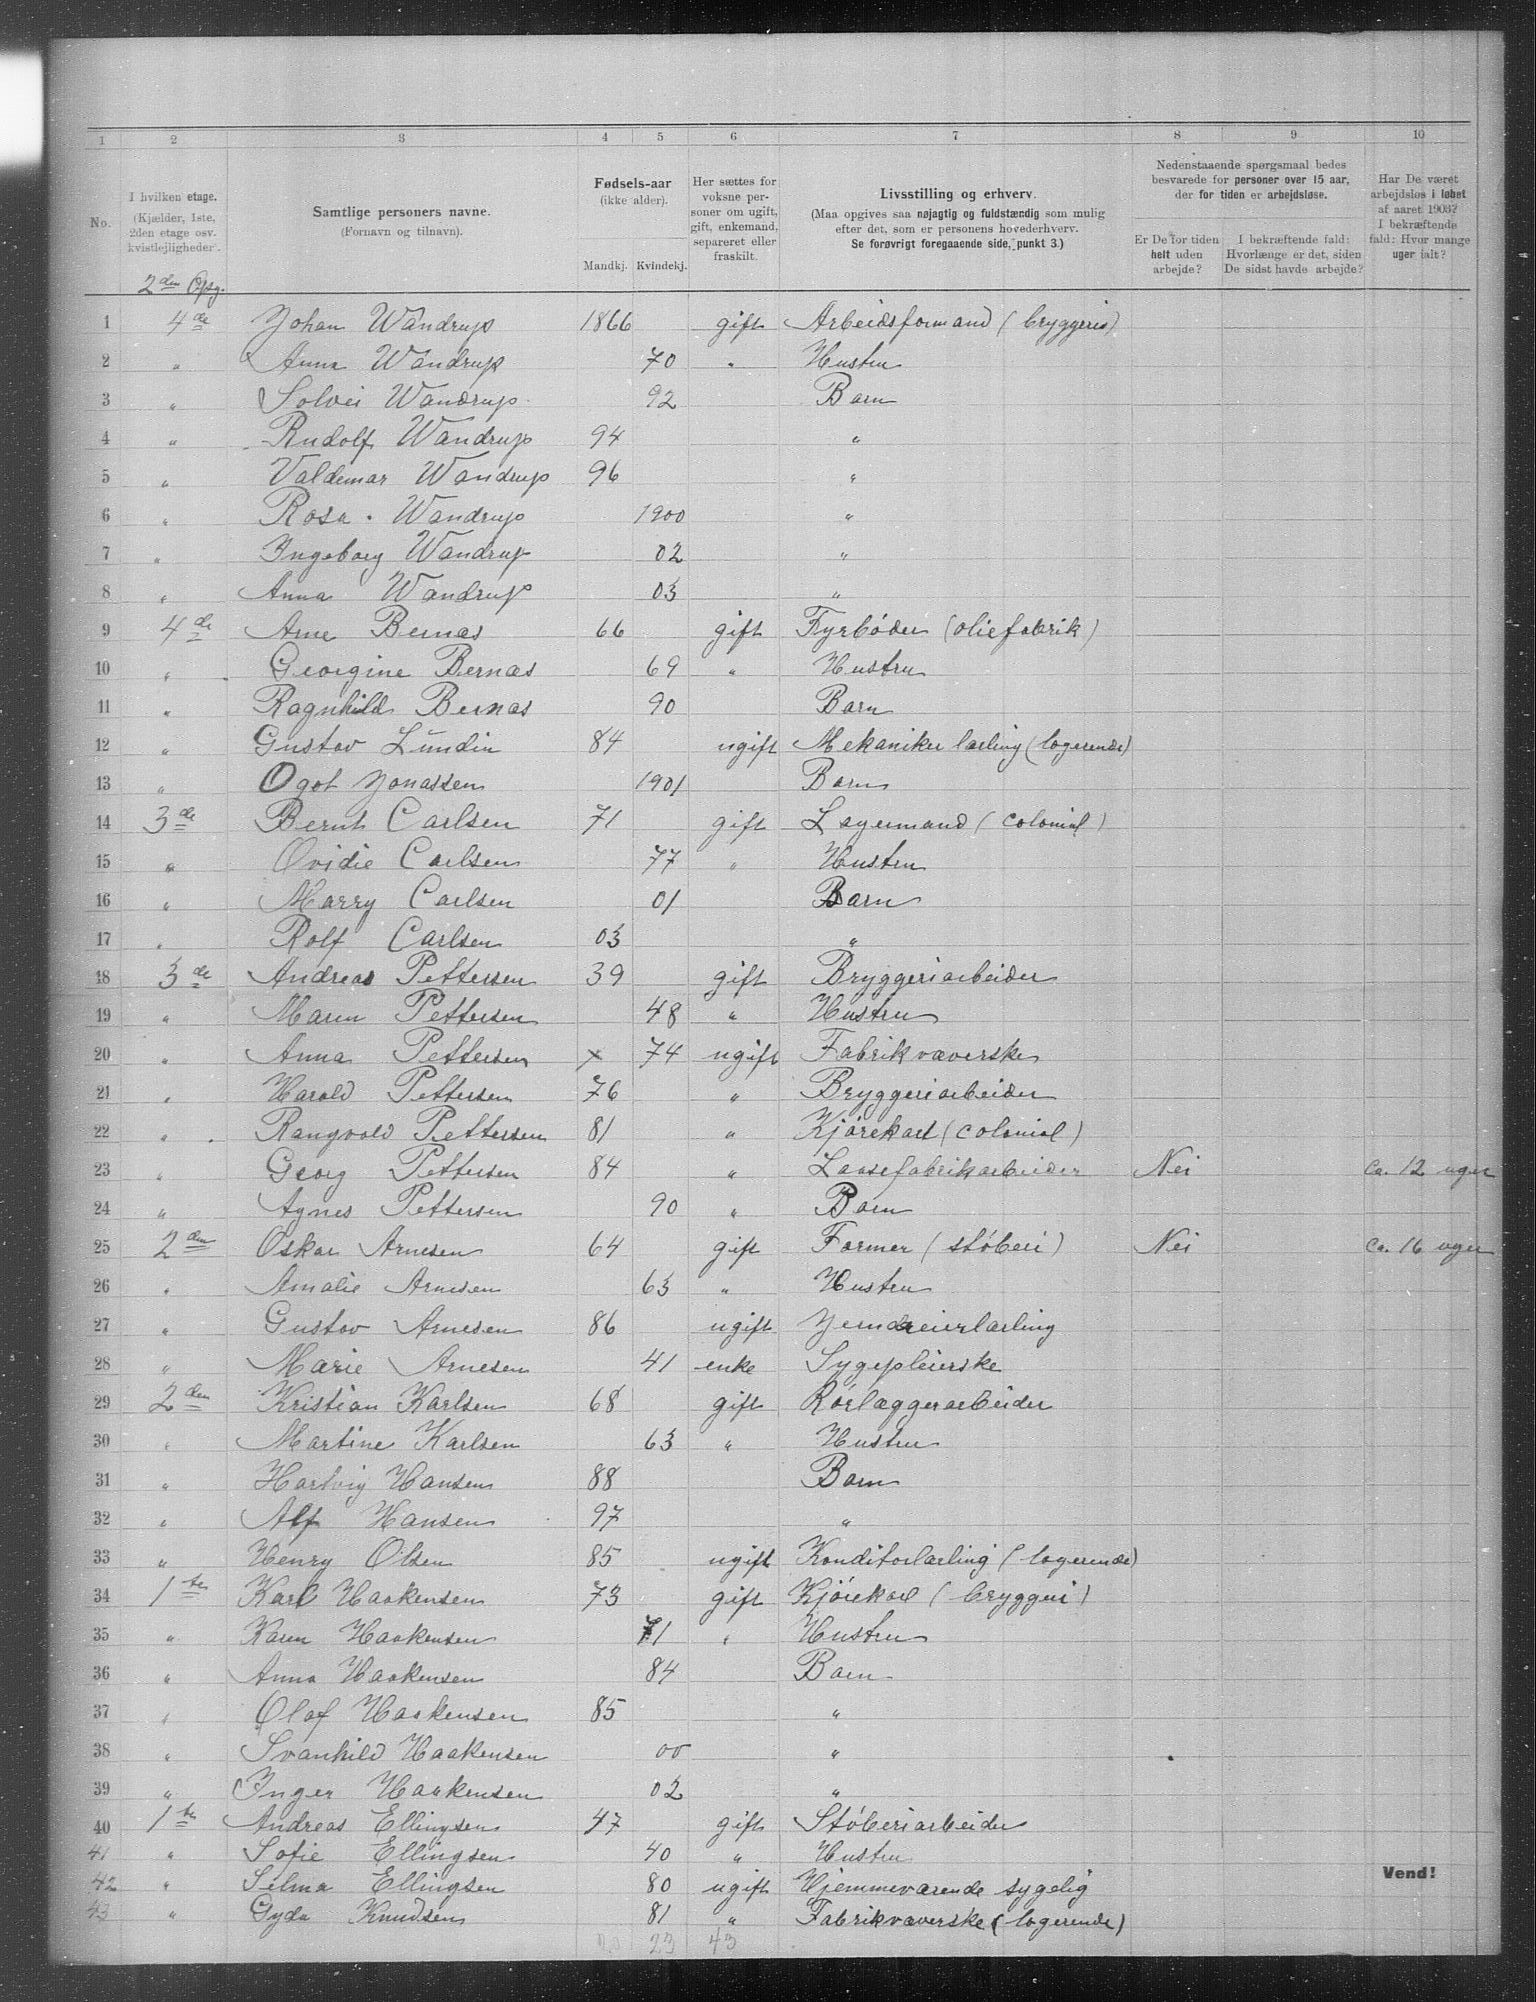 1 2 3 4 5 6 7 8 9 10
No.
I hvilken etage.
(Kjælder, 1ste,
2den etage osv.
kvistlejligheder).
Samtlige personers navne.
(Fornavn og tilnavn).
Fødsels-aar
(ikke alder).
Mandkj. Kvindekj.
Her sættes for
voksne per-
soner om ugift,
gift, enkemand,
separeret eller
fraskilt.
Livsstilling og erhverv.
(Maa opgives saa nøjagtig og fuldstændig som mulig
efter det, som er personens hovederhverv.
Se forøvrigt foregaaende side, punkt 3.)
Nedenstaaende spørgsmaal bedes
besvarede for personer over 15 aar,
der for tiden er arbejdsløse.
Er De for tiden
helt uden
arbejde?
I bekræftende fald:
Hvorlænge er det, siden
De sidst havde arbejde?
Har De været
arbejdsløs i løbet
af aaret 1903?
I bekræftende
fald: Hvor mange
uger ialt?
2den Opg.
1 4de Johan Wandrup 1866 gift Arbeidsformand (bryggeri)
2 " Anna Wandrup 70 " Hustru
3 " Solvei Wandrup 92 Barn
4 " Rudolf Wandrup 94 "
5 " Valdemar Wandrup 96 "
6 " Rosa Wandrup 1900 "
7 " Ingeborg Wandrup 02 "
8 " Anna Wandrup 03 "
9 4de Arne Bernas 66 gift Fyrbøder (oliefabrik)
10 " Georgine Bernas 69 " Hustru
11 " Ragnhild Bernas 90 Barn
12 " Gustav Lundin 84 ugift Mekaniker lærling (logerende)
13 " Ogot Jonassen 1901 Barn
14 3de Bernt Carlsen 71 gift Lagermand (colonial)
15 " Ovidie Carlsen 77 " Hustru
16 " Marry Carlsen 01 Barn
17 " Rolf Carlsen 03 "
18 3de Andreas Pettersen 39 gift Bryggeriarbeider
19 " Maren Pettersen 48 " Hustru
20 " Anna Pettersen x 74 ugift Fabrikvæverske
21 " Harald Pettersen 76 " Bryggeriarbeider
22 " Rangvald Pettersen 81 " Kjørekarl (colonial)
23 " Georg Pettersen 84 " Laasefabrikarbeider Nei ca. 12 uger
24 " Agnes Pettersen 90 " Barn
25 2den Oskar Arnesen 64 gift Former (støberi) Nei ca. 16 uger
26 " Amalie Arnesen 63 " Hustru
27 " Gustav Arnesen 86 ugift Jerndreierlærling
28 " Marie Arnesen 41 enke Sygepleierske
29 2den Kristian Karlsen 68 gift Rørlæggerarbeider
30 " Martine Karlsen 63 " Hustru
31 " Hartvig Hansen 88 Barn
32 " Alf Hansen 97 "
33 " Henry Olsen 85 ugift Konditorlærling (logerende)
34 1te Karl Haakensen 73 gift Kjørekarl (bryggeri)
35 " Karen Haakensen 71 " Hustru
36 " Anna Haakensen 84 Barn
37 " Olaf Haakensen 85 "
38 " Svanhild Haakensen 00 "
39 " Inger Haakensen 02 "
40 1te Andreas Ellingsen 47 gift Støberiarbeider
41 " Sofie Ellingsen 40 " Hustru
42 " Selma Ellingsen 80 ugift Hjemmeværende sygelig
43 " Gyda Knudsen 81 " Fabrikvæverske (logerende)
20 23 43
Vend!